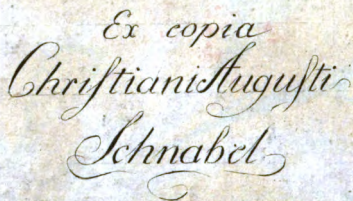 Ex copia
Chriſtiani Auguſti
Schnabel